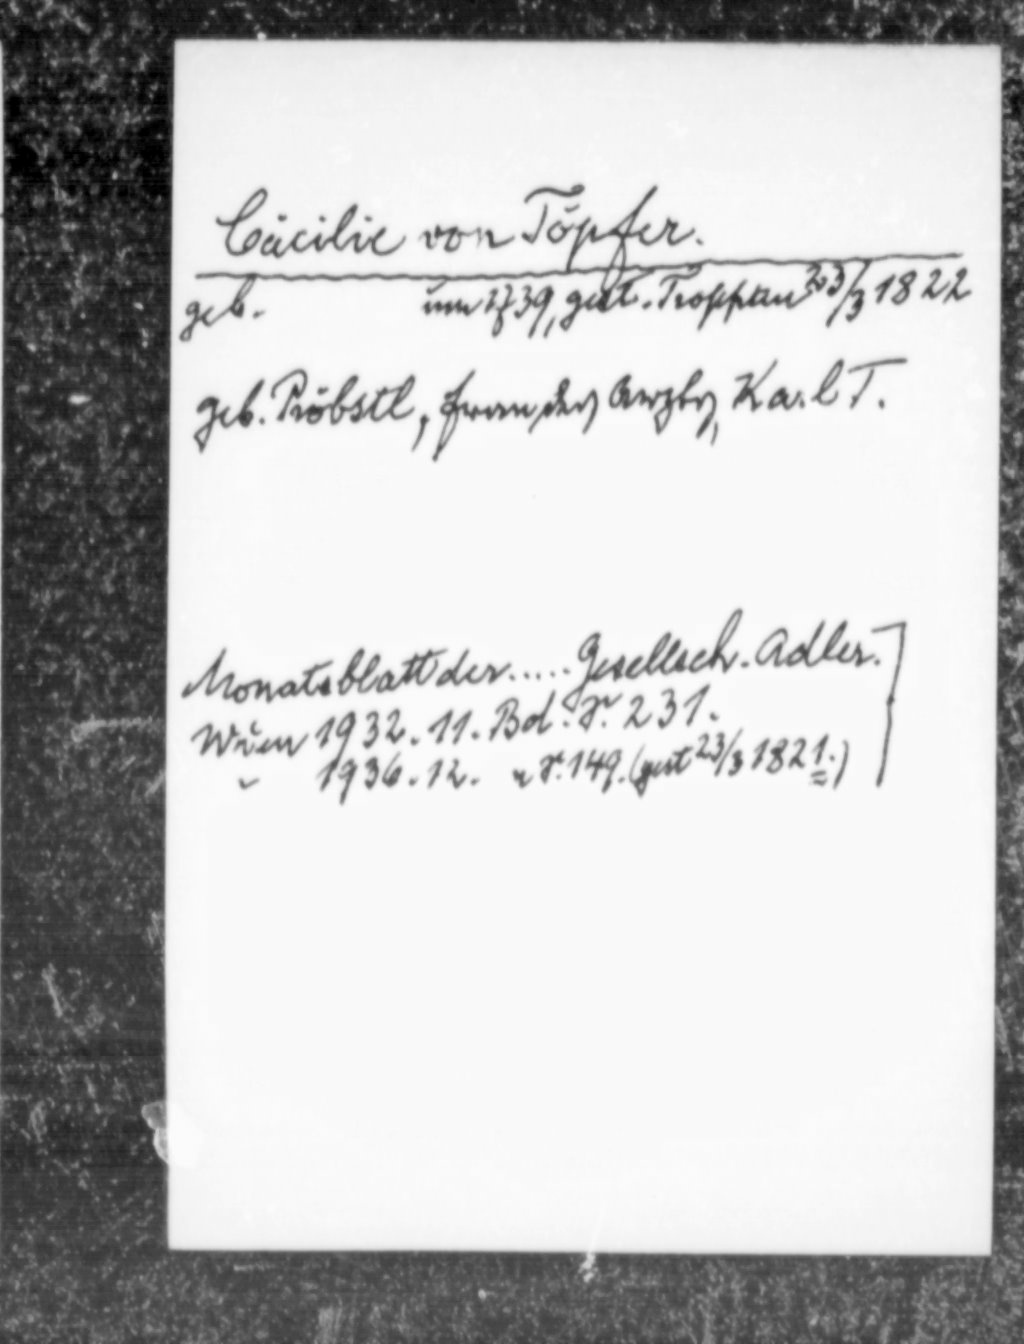 Cäcilie von Töpfer.
geb. um 1739, gest. Troppau 23/3 1822
geb. Pröbstl, Frau des Arztes, Karl T.
Monatsblatt der..... Gesellsch. Adler.
Wien 1932. 11. Bd. S. 231.
" 1936. 12. " S. 149. (gest 23/3 1821.)